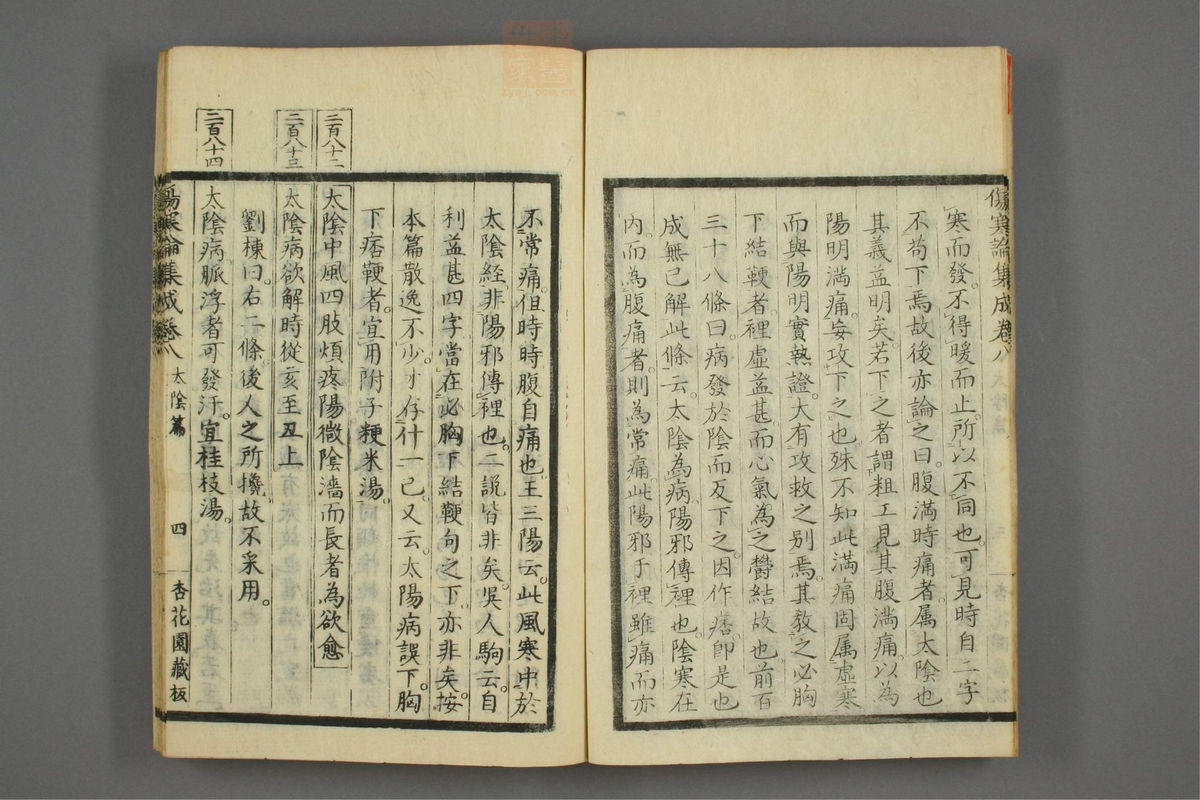 傷寒論集成卷八
寒而發。不得暖而止。所以不同也。可見時自二字
不苟下焉。故後亦論之曰。腹滿時痛者。属太陰也
其義益明矣。若下之者。謂粗工見其腹滿痛。以為
陽明滿痛。妄攻下之也。殊不知此滿痛固属虛寒
而與陽明實熱證。大有攻救之別焉。其敎之必胸
下結鞕者。裡虛益甚。而心氣為之欝結故也。前百
三十八條曰。病發於陰。而反下之。因作痞。卽是也
成無已解此條云。太陰為病。陽邪傳裡也。陰寒在
內。而為腹痛者。則為常痛。此陽邪于裡。雖痛而亦
不常痛。但時時腹自痛也。王三陽云。此風寒中於
太陰經。非陽邪傳裡也。二說皆非矣。吳人駒云。自
利益甚四字。當在必胸下結鞕句之下。亦非矣。按
本篇散逸不少。才存什一已。又云。太陽病誤下。胸
下痞鞕者。宜用附子粳米湯。
二百八十二
太陰中風四肢煩疼陽微陰濇而長者為欲愈
二百八十三
太陰病欲解時從亥至丑上
劉棟曰。右二條。後人之所攙。故不采用。
二百八十四
太陰病脈浮者可發汗。宜桂枝湯。
傷寒論集成卷八 太陰篇 四 杏花園藏板